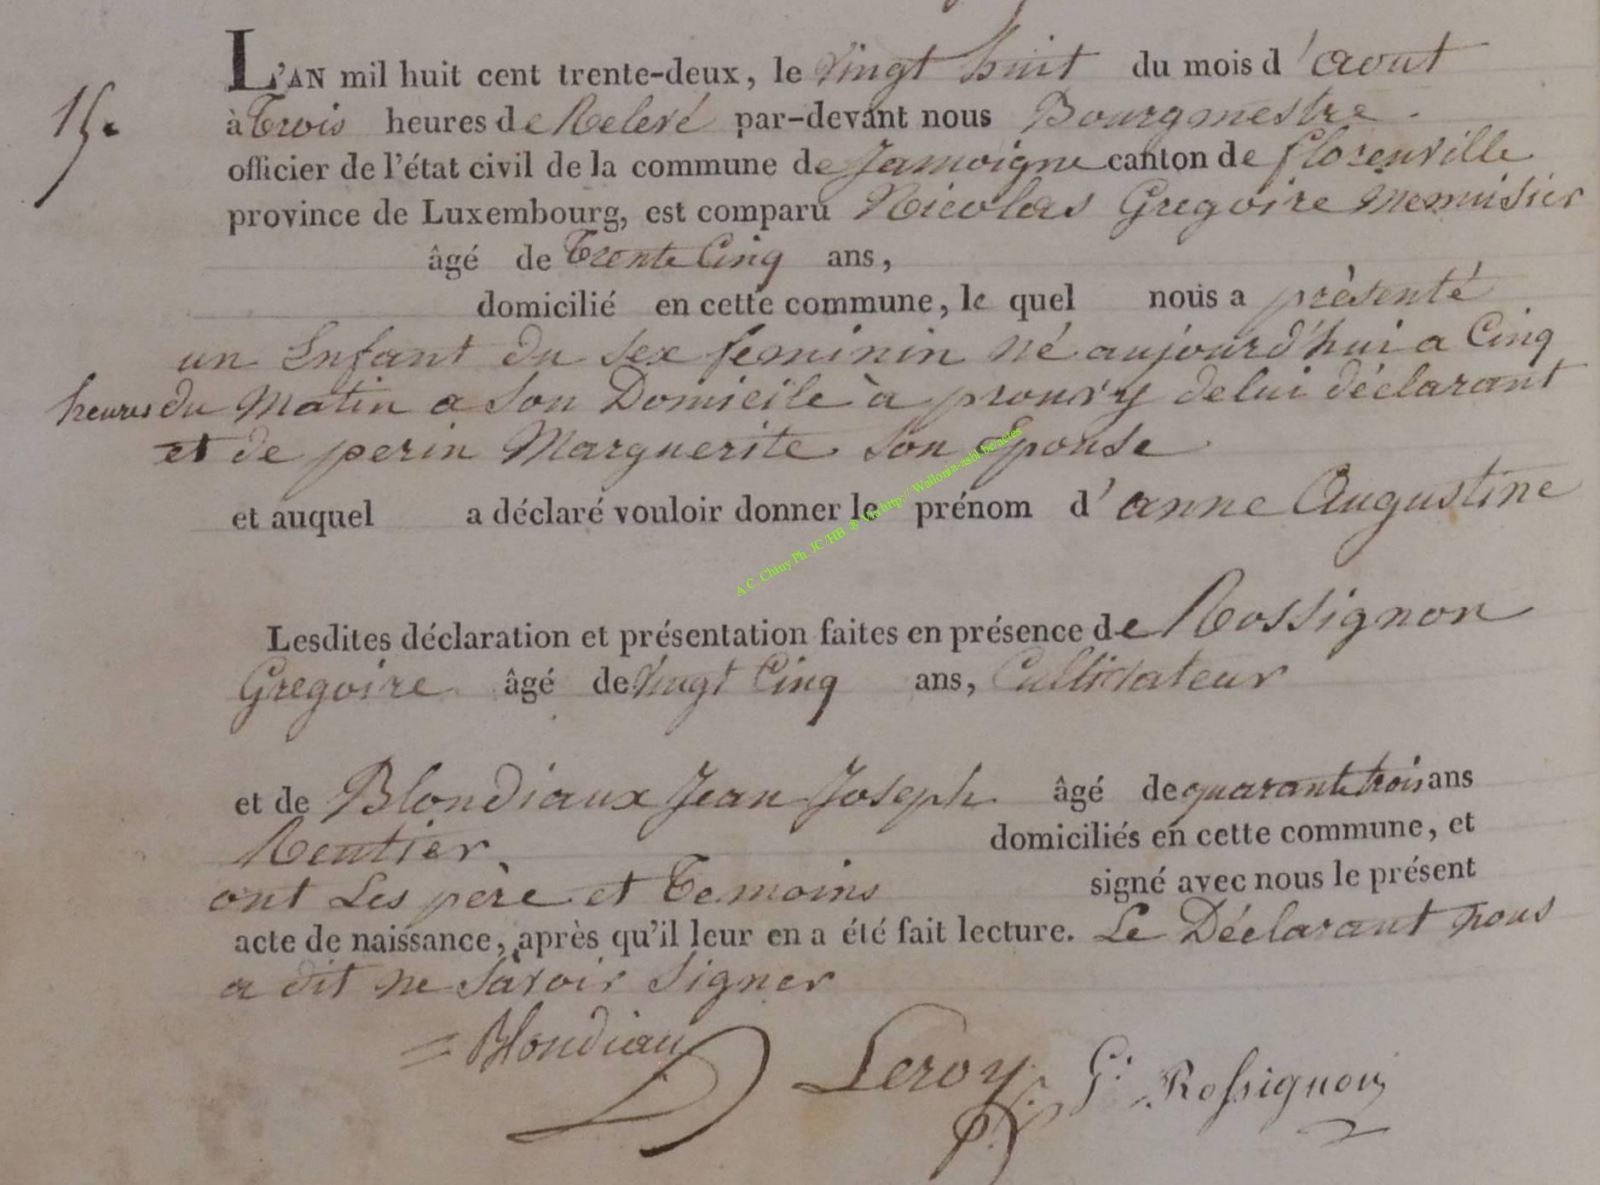 L'AN mil huit cent trente-deux, le Vingt huit du mois d'aout
15.
à Trois heures de Relevé par-devant nous Bourgmestre.
officier de l'état civil de la commune de Jamoigne canton de florenville
province de Luxembourg, est comparu Nicolas Gregoire Menuisier
âgé de Trente Cinq ans,
domicilié en cette commune, le quel nous a présenté
un Enfant du Sex feminin né aujourd'hui a Cinq
heures du Matin a Son Domicile à prouvy de lui déclarant
et de perin Marguerite Son Epouse
et auquel a déclaré vouloir donner le prénom d'anne Augustine
A.C. Chiny Ph. JC/HB ® Via http:// Wallonia-asbl.be/actes
Lesdites déclaration et présentation faites en présence de Rossignon
Gregoire âgé de Vingt Cinq ans, Cultivateur
et de Blondiaux Jean Joseph âgé de quarante trois ans
Rentier domiciliés en cette commune, et
ont Les père et Temoins signé avec nous le présent
acte de naissance, après qu'il leur en a été fait lecture. Le Déclarant nous
a dit ne Savoir Signer
Blondiau Leroy G. Rossignon